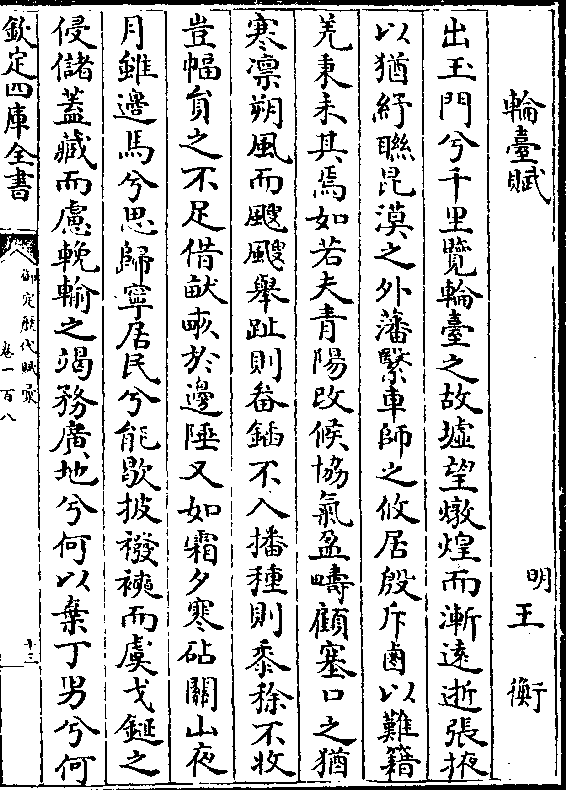 輪臺賦
明王　衡
出玉門兮千里覽輪臺之故墟望燉煌而漸遠逝張掖
以猶紆聯昆漠之外藩繄車師之攸居殷斥鹵以難籍
羌秉耒其焉如若夫青陽改候協氣盈疇顧塞口之猶
寒凛朔風而颼颼舉趾則畚鍤不入播種則黍稌不收
豈幅負之不足借畝畮於邊陲又如霜夕寒砧關山夜
月雖邊馬兮思歸寧居民兮能歇披襏襫而虞戈鋋之
侵儲蓋藏而慮輓輸之竭務廣地兮何以棄丁男兮何
欽定四庫全書
御定歷代賦彙
卷一百八
十三